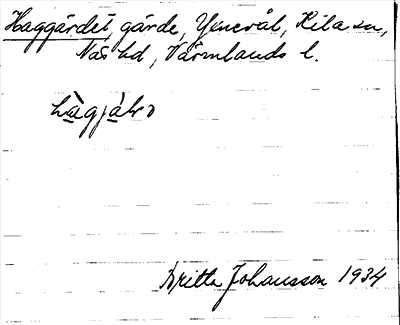 Haggärdet, gärde, Ysnevål, Kila sn,
Näs hd, Värmlands l.
Britta Johansson 1934